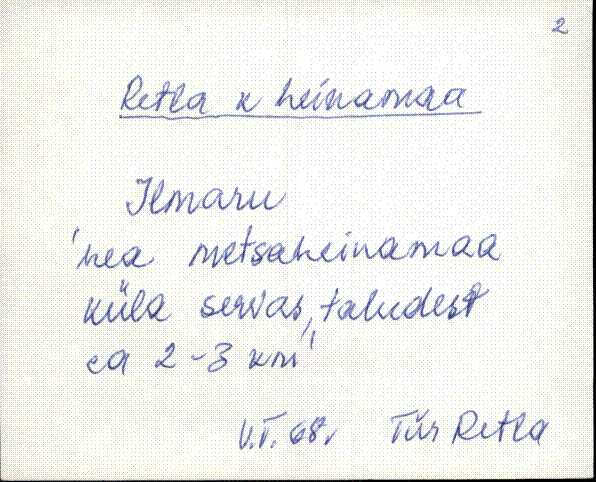 2
Retla k heinamaa
Ilmaru
'hea metsaheinamaa
küla servas, taludest
ca 2-3 km'
V.T. 68. Tür Retla